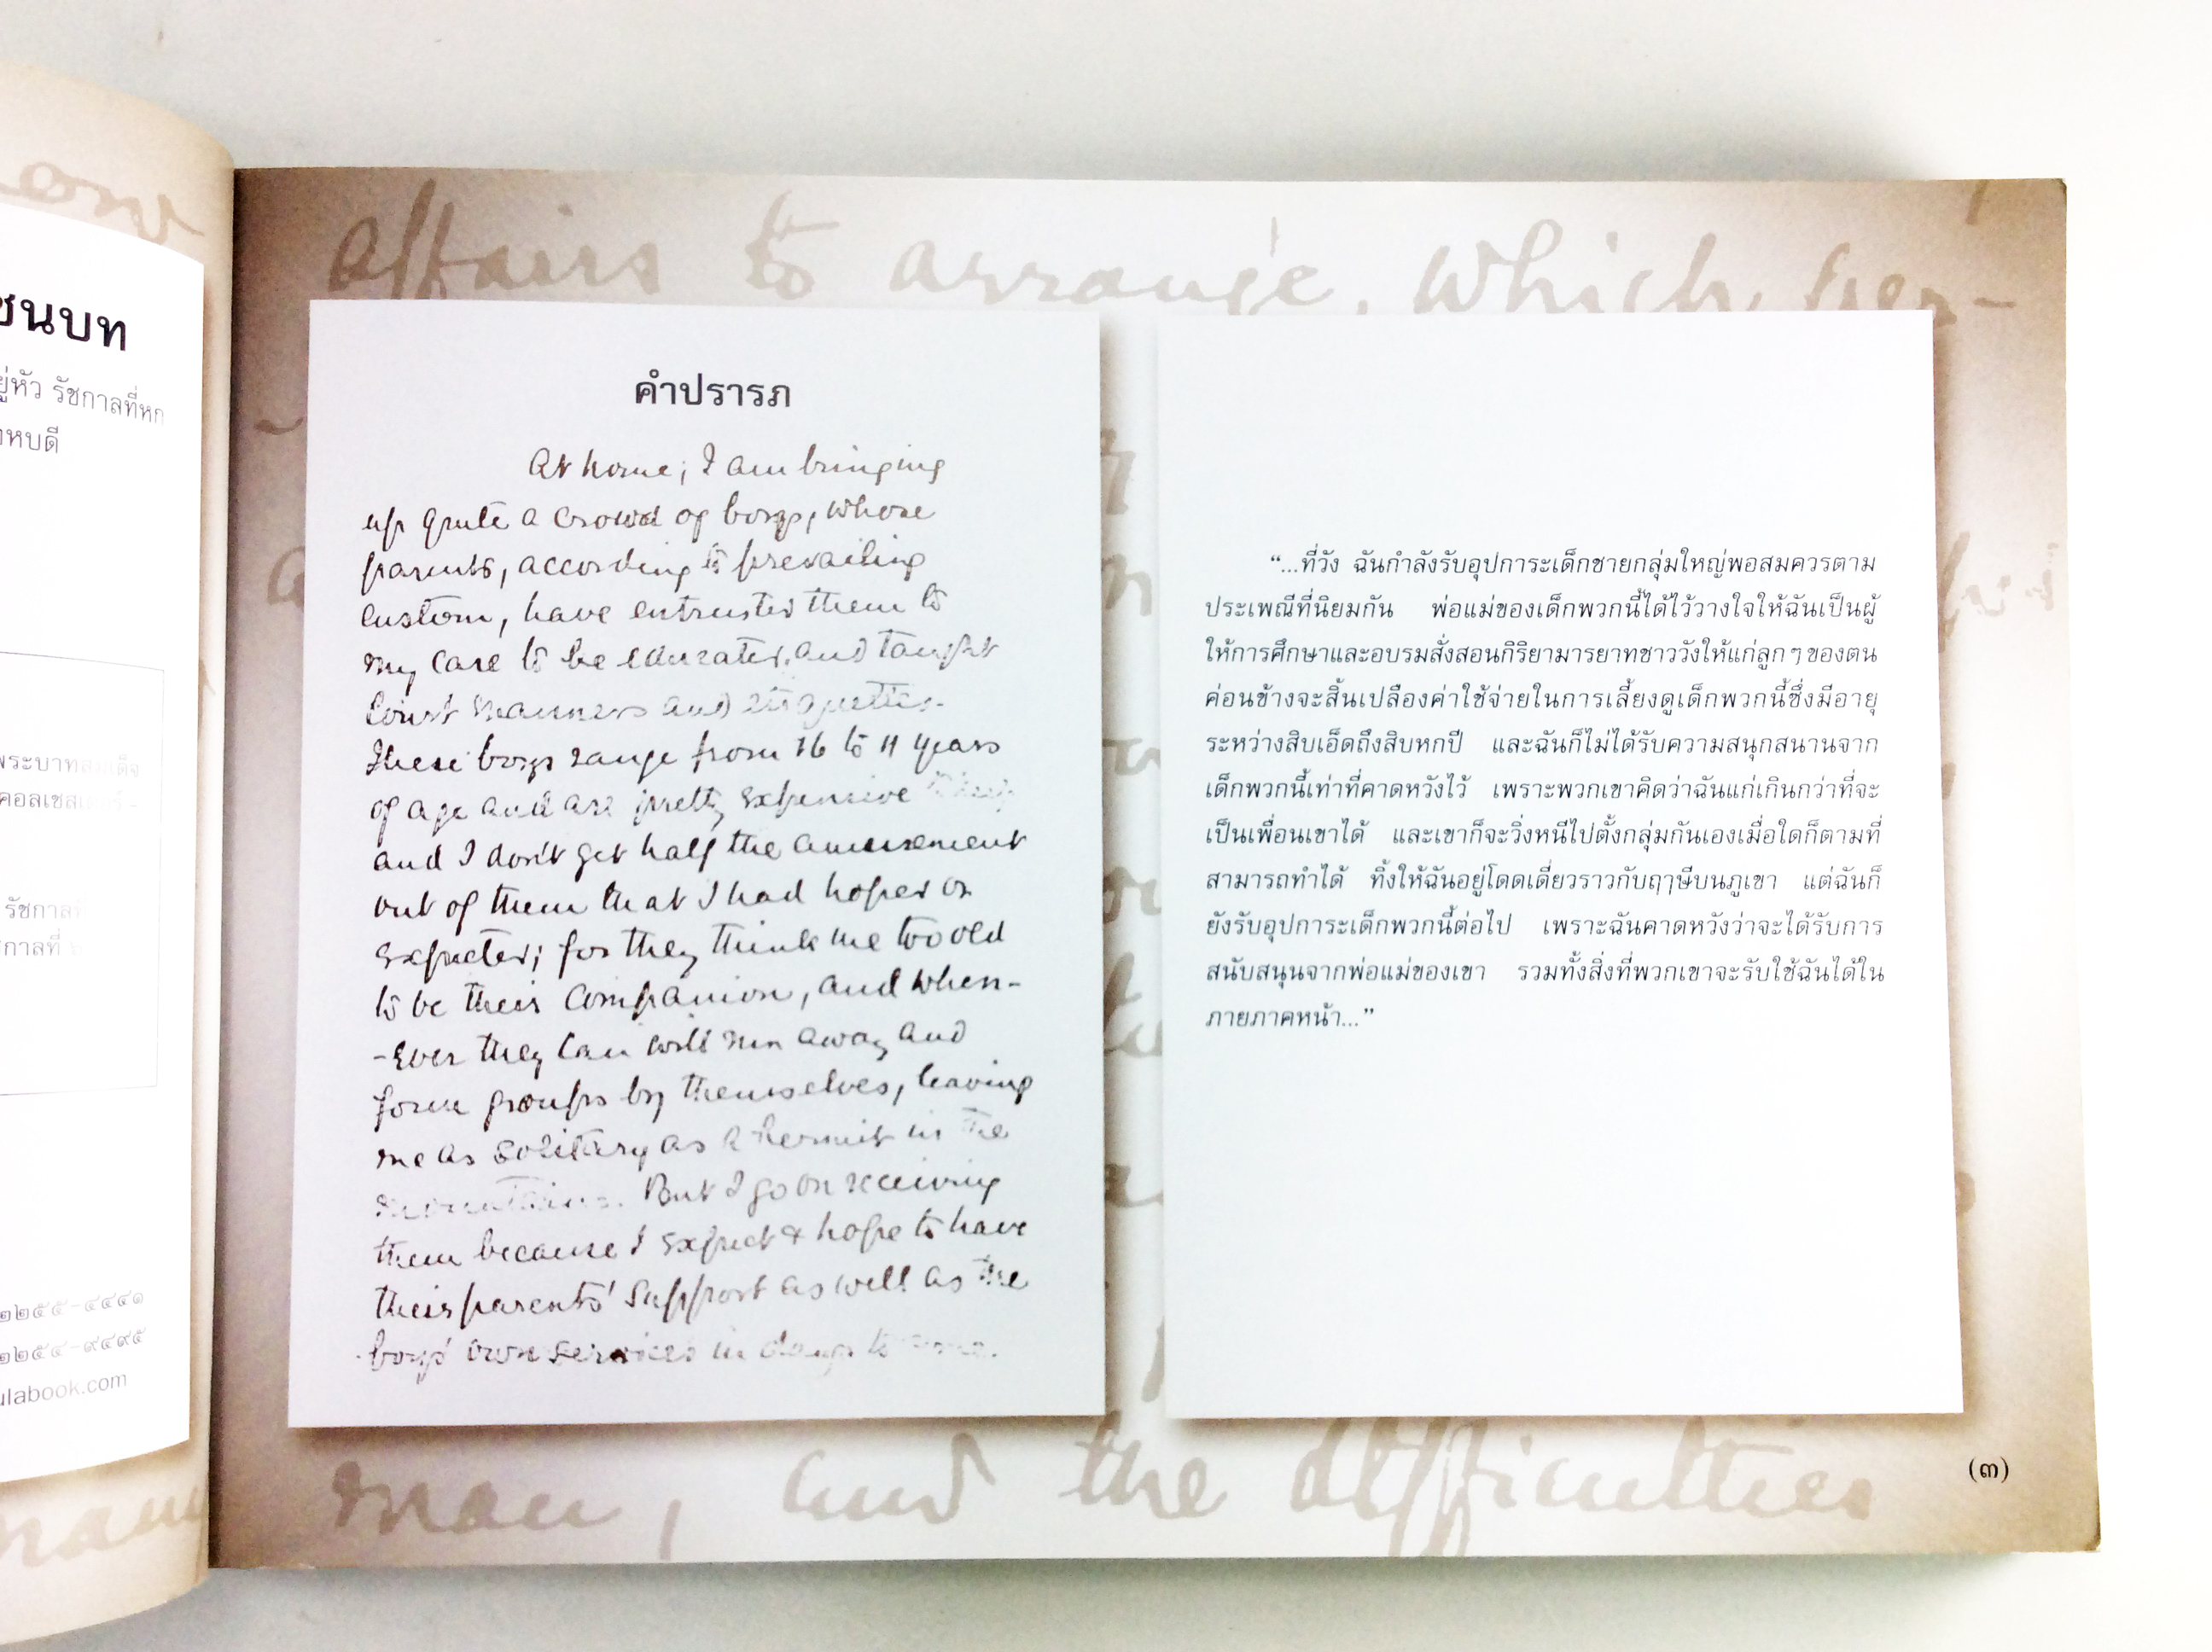 ชนบท
ยู่หัว รัชกาลที่หก
หบดี
พระบาทสมเด็จ
รัชกาล
กาลที่
๒๒๕๕-๔๔๔๑
๒๒๕๔-๙๔๙๕
ulabook.com
affairs to arrange, which per-
คำปรารภ
At home, I am bringing
up quite a crowd of boys, whose
parents, according to prevailing
custom, have entrusted them to
my care to be educated, and taught
Court manners and etiquette.
These boys range from 16 to 11 years
of age and are pretty expensive
and I don't get half the amusement
out of them that I had hoped or
expected; for they think me too old
to be their companion, and when-
-ever they can will run away and
form groups by themselves, leaving
me as solitary as a hermit in the
mountains. But I go on receiving
them because I expect & hope to have
their parents' support as well as the
boys' own services in days to come.
“...ที่วัง ฉันกำลังรับอุปการะเด็กชายกลุ่มใหญ่พอสมควรตาม
ประเพณีที่นิยมกัน พ่อแม่ของเด็กพวกนี้ได้ไว้วางใจให้ฉันเป็นผู้
ให้การศึกษาและอบรมสั่งสอนกิริยามารยาทชาววังให้แก่ลูกๆ ของตน
ค่อนข้างจะสิ้นเปลืองค่าใช้จ่ายในการเลี้ยงดูเด็กพวกนี้ซึ่งมีอายุ
ระหว่างสิบเอ็ดถึงสิบหกปี และฉันก็ไม่ได้รับความสนุกสนานจาก
เด็กพวกนี้เท่าที่คาดหวังไว้ เพราะพวกเขาคิดว่าฉันแก่เกินกว่าที่จะ
เป็นเพื่อนเขาได้ และเขาก็จะวิ่งหนีไปตั้งกลุ่มกันเองเมื่อใดก็ตามที่
สามารถทำได้ ทิ้งให้ฉันอยู่โดดเดี่ยวราวกับฤๅษีบนภูเขา แต่ฉันก็
ยังรับอุปการะเด็กพวกนี้ต่อไป เพราะฉันคาดหวังว่าจะได้รับการ
สนับสนุนจากพ่อแม่ของเขา รวมทั้งสิ่งที่พวกเขาจะรับใช้ฉันได้ใน
ภายภาคหน้า...”
man, and the difficulties
(๓)